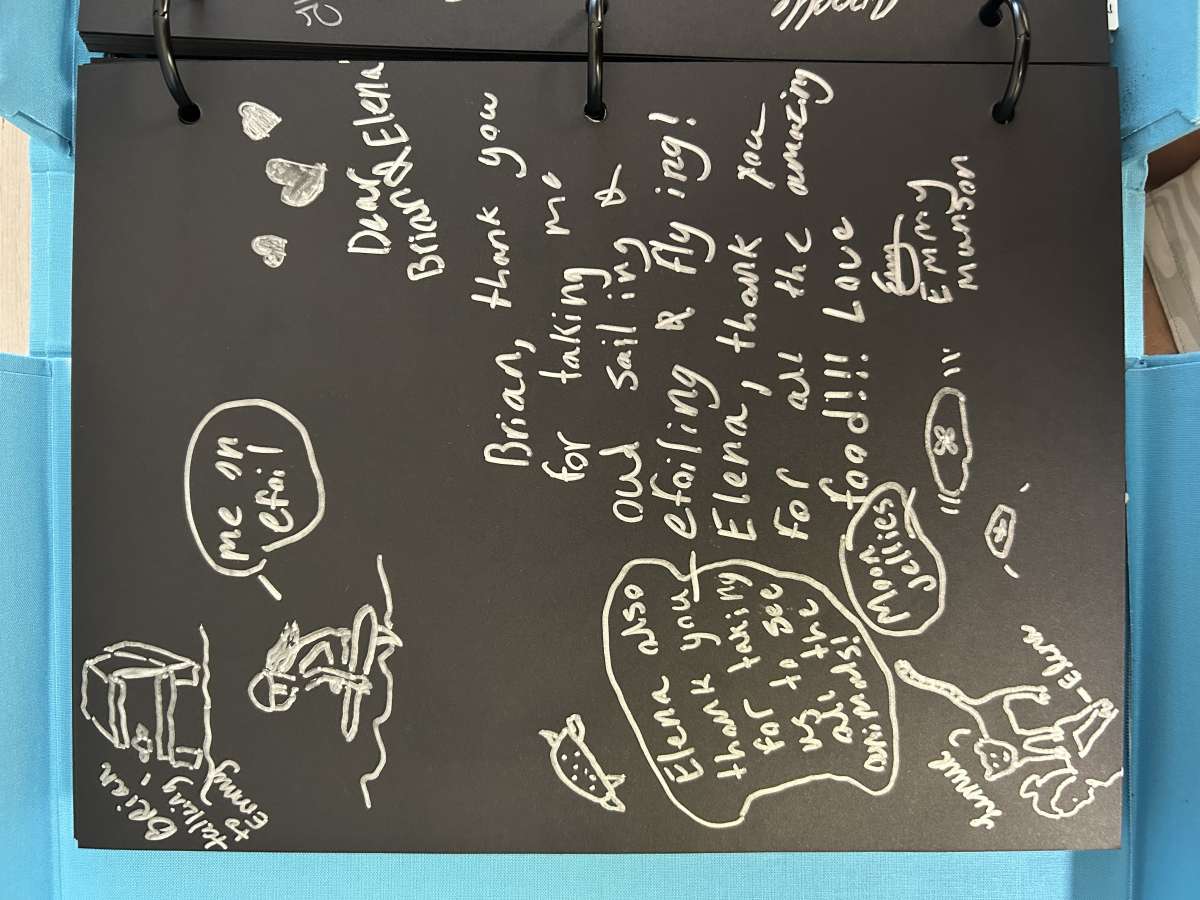 Dear
Brian & Elena
Brian, thank you
for taking me
out sailing &
efoiling & flying!
Elena, thank you
for all the
amazing
food!!! Love
Emmy
Munson
me on
efoil
Brian
talking
to
Emmy
Elena also
thank you
for taking
us to see
all the
animals!
Moon
Jellies
Lemur
-Elena